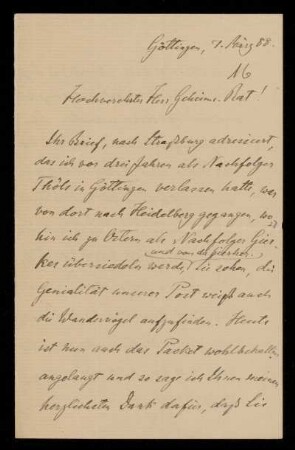 Göttingen, 7. März 88.
16
Hochverehrter Herr Geheim. Rat!
Ihr Brief, nach Straßburg adressiert,
das ich vor drei Jahren als Nachfolger
Thöls in Göttingen verlassen hatte, war
von dort nach Heidelberg gegangen, wo-
hin ich zu Ostern als Nachfolger Gier-
und von da hierher.
kes übersiedeln werde, Sie sehen, die
Genialität unserer Post weiß auch
die Wandervögel aufzufinden. Heute
ist nun auch das Packet wohlbehalten
angelangt und so sage ich Ihnen meinen
herzlichsten Dank dafür, daß Sie